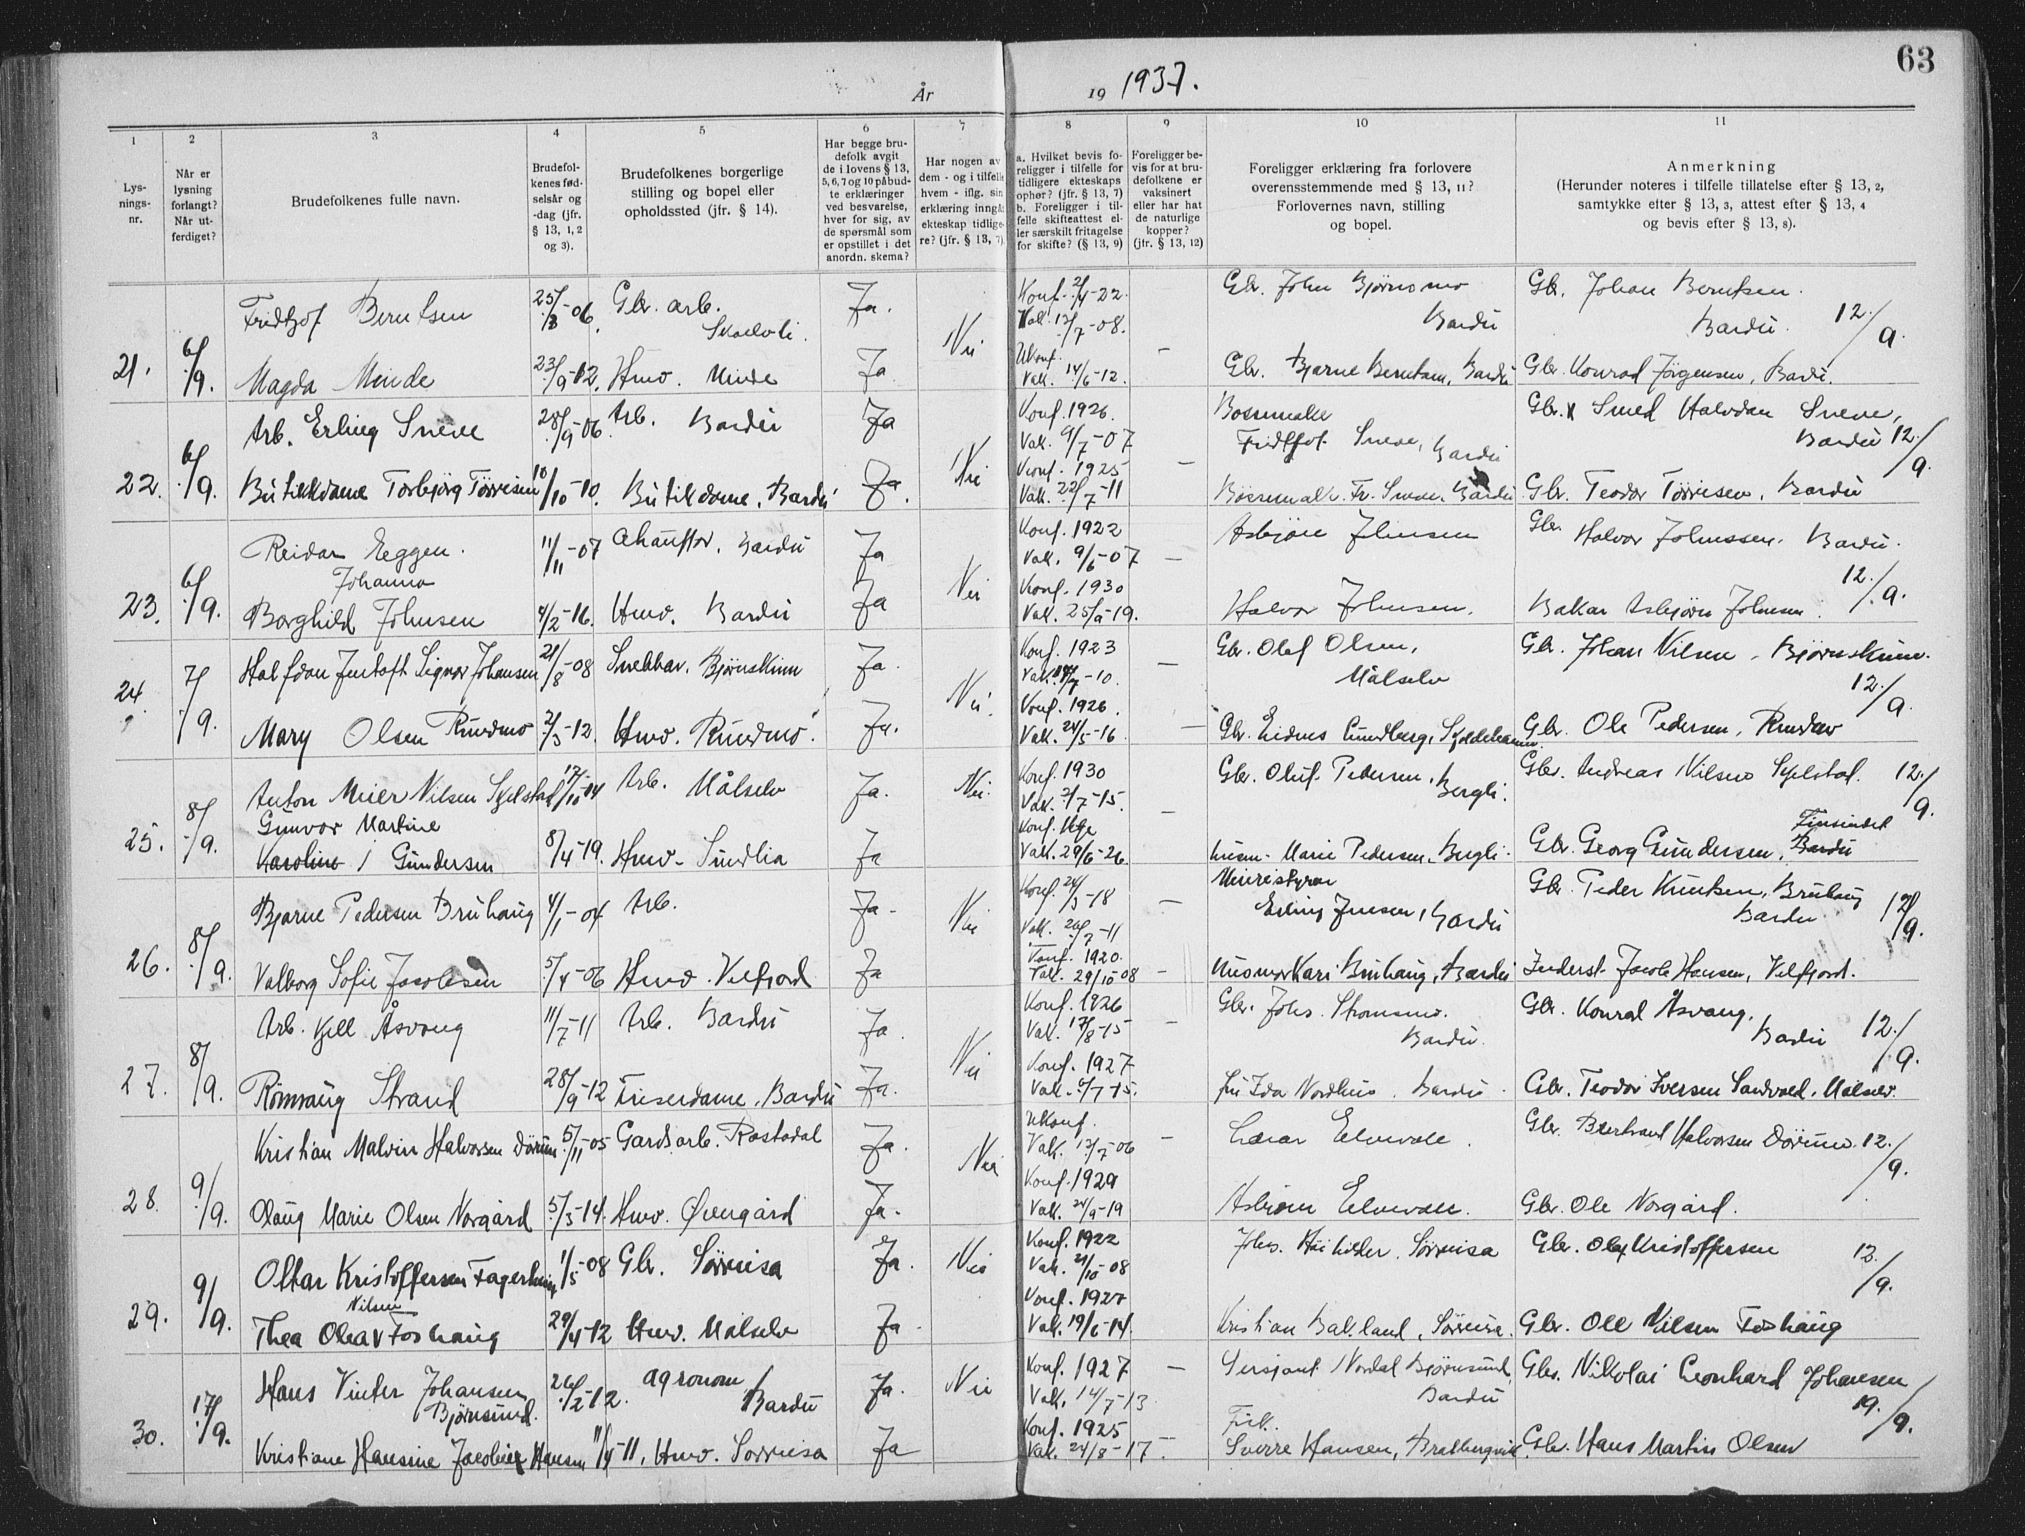 63
År
19 1937.
1 2 3 4 5 6 7 8 9 10 11
Lys-
nings-
nr.
Når er
lysning
forlangt?
Når ut-
ferdiget?
Brudefolkenes fulle navn.
Brudefol-
kenes fød-
selsår og
-dag (jfr.
§ 13, 1, 2
og 3).
Brudefolkenes borgerlige
stilling og bopel eller
opholdssted (jfr. § 14).
Har begge bru-
defolk avgit
de i lovens § 13,
5, 6, 7 og 10 påbud-
te erklæringer
ved besvarelse,
hver for sig, av
de spørsmål som
er opstillet i det
anordn. skema?
Har nogen av
dem - og i tilfelle
hvem - iflg. sin
erklæring inngått
ekteskap tidlige-
re? (jfr. § 13, 7)
a. Hvilket bevis fo-
religger i tilfelle for
tidligere ekteskaps
ophør? (jfr. § 13, 7)
b. Foreligger i til-
felle skifteattest el-
ler særskilt fritagelse
for skifte? (§ 13, 9)
Foreligger be-
vis for at bru-
defolkene er
vaksinert
eller har hat
de naturlige
kopper?
(jfr. § 13, 12)
Foreligger erklæring fra forlovere
overensstemmende med § 13, 11?
Forlovernes navn, stilling
og bopel.
Anmerkning
(Herunder noteres i tilfelle tillatelse efter § 13, 2,
samtykke efter § 13, 3, attest efter § 13, 4
og bevis efter § 13, 8).
Fridtjof Berntsen 25/8-06. Gbr. arb. Ja. Konf. 2/4-22. Gbr. John Bjørnsmo Gbr. Johan Berntsen.
Vak. 13/7-08. Bardu Bardu. 12./9.
21. 6/9. Nei
Magda Minde 23/9-12. Hmv. Minde Ja Ukonf. Vak. 14/6-12. – Gbr. Bjarne Berntsen, Bardu Gbr. Konrad Jørgensen, Bardu.
Arb. Erling Sneve 28/9-06. Arb. Bardu Ja Konf. 1926. Gbr. Smed Halvdan Sneve,
Vak. 9/7-07 Fridtjof Sneve, Bardu Bardu 12./9.
22. 6/9. Butikkdame Torbjørg Tørresen 10/10-10. Butikdame, Bardu Ja. Nei Konf. 1925 Vak. 22/7-11 – Fr. Sneve, Bardu Gbr. Teodor Tørresen, Bardu
Reidar Eggen. 11/11-07 Chauffør, Bardu Ja Konf. 1922 Asbjørn Johnsen Gbr. Halvor Johnssen. Bardu.
Vak. 9/6-07 –
Johanna
23. 6/9. Borghild Johnsen 4/2-16. Hmv. Bardu Ja Nei Konf. 1930 Vak. 25/9-19. Halvor Johnsen. Baker Asbjørn Johnsen. 12./9.
Halfdan Jentoft Signor Johansen 21/8-08 Snekker. Bjørnskinn Ja. Konf. 1923 Gbr. Olaf Olsen, Gbr. Johan Nilsen, Bjørnskinn.
Målselv 12./9
24. 7/9. Nei.
Mary Olsen Rundmo 2/3-12. Hmv. Rundmo. Ja. Konf. 1926. Vak. 24/5-16 – Gbr. Eidnes Lundberg, Gbr. Ole Pedersen,
Anton Meier Nilsen Skjelstad 17/10-14 Arb. Målselv Ja. Nei. Konf. 1930 Gbr. Oluf Pedersen, Bergli. Gbr. Andreas Nilsen Skjelstad. 12./9.
Vak. 2/7-15.
Gunvor Martine
25. 8/9. Karoline Gundersen 8/4-19. Hmv. Sundlia Ja Konf. Vak. 29/6-26. – Marie Pedersen, Bergli. Gbr. Georg Gundersen, Bardu
Bjarne Pedersen Bruhaug 4/1-04 Arb. Ja. Nei Konf. 24/3-18 Meieristyrer Gbr. Peder Knutsen, Bruhaug
Vak. 20/7-11 – Erling Jensen, Bardu Bardu 12/9.
26. 8/9. Valborg Sofie Jacobsen 5/4-06 Hmv. Velfjord Ja Konf. 1920. Vak. 29/10-08 – Kari Bruhaug, Bardu Inderst. Jacob Hansen, Velfjord.
Arb. Kjell Åsvang 11/7-11 Arb. Bardu Ja. Konf. 1926 Gbr. Johs. Strømsmo. Gbr. Konrad Åsvang.
Vak. 17/8-15 – Bardu. Bardu 12./9.
27. 8/9. Rønnaug Strand 28/9-12 Friserdame, Bardu Ja. Nei Konf. 1927 Vak. 9/7-15. Fru Ida Nordhus. Bardu. Gbr. Teodor Iversen Sandvold, Målselv.
Kristian Malvin Halvorsen 5/11-05 Gardsarb. Rostadal Ja. Nei Ukonf. Vak. 13/7-06 – Lærer Elvevoll. Gbr. Bertrand Halvorsen 12./9.
28. 9/9. Olaug Marie Olsen Norgård 5/3-14. Hmv. Øvergård Ja. Konf. 1929 Vak. 24/9-19 Asbjørn Elvevoll. Gbr. Ole Norgård.
Ottar Kristoffersen 1/5-08 Gbr. Sørreisa Ja. Nei Konf. 1922 Johs. Sørreisa Gbr. Olaf Kristoffersen 12./9.
Vak. 21/10-08
Nilsen
29. 9/9. Thea Olea Foshaug 29/4-12 Hmv. Målselv Ja. Konf. 1927 Vak. 19/6-14. Kristian Sørreisa. Gbr. Ole Nilsen Foshaug
Hans Vinter Johansen 26/2-12. agronom Ja. Nei Konf. 1927 – Sersjant Nordal Bjørnsund, Gbr. Nikolai Leonhard Johansen
Bjørnsund. Bardu Vak. 14/7-13 Bardu 19./9.
30. 17/9. Kristiane Hansine Hansen 11/4-11. Hmv. Sørreisa Ja Konf. 1925 Vak. 24/8-17 – Fisk. Sverre Hansen, Gbr. Hans Martin Olsen